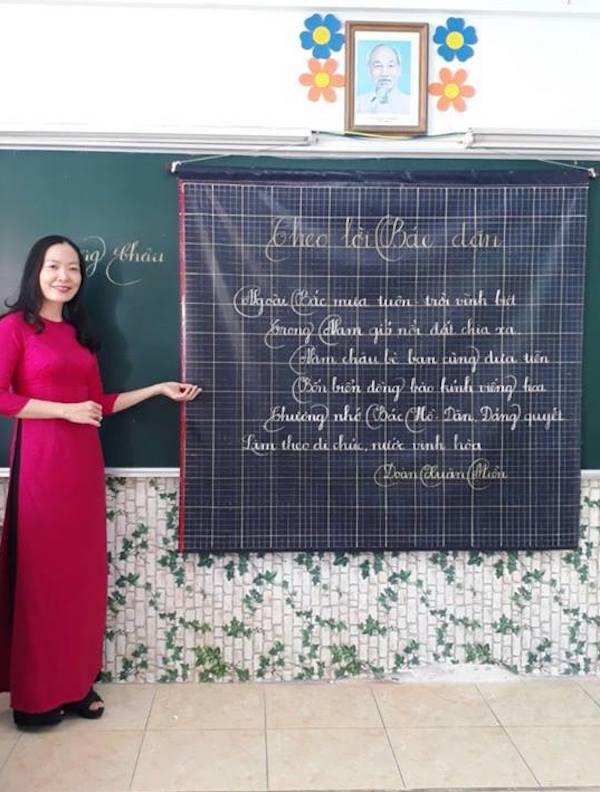 Theo lời Bác dặn
Ngoài Bắc mưa tuôn - trời vĩnh biệt
Trong Nam gió nổi đất chia xa
Năm châu bè bạn cùng đưa tiễn
Bốn biển đồng bào kính viếng hoa
Thương nhớ Bác Hồ - Dân, Đảng quyết
Làm theo di chúc, nước vinh hòa
Đoàn Xuân
Châu